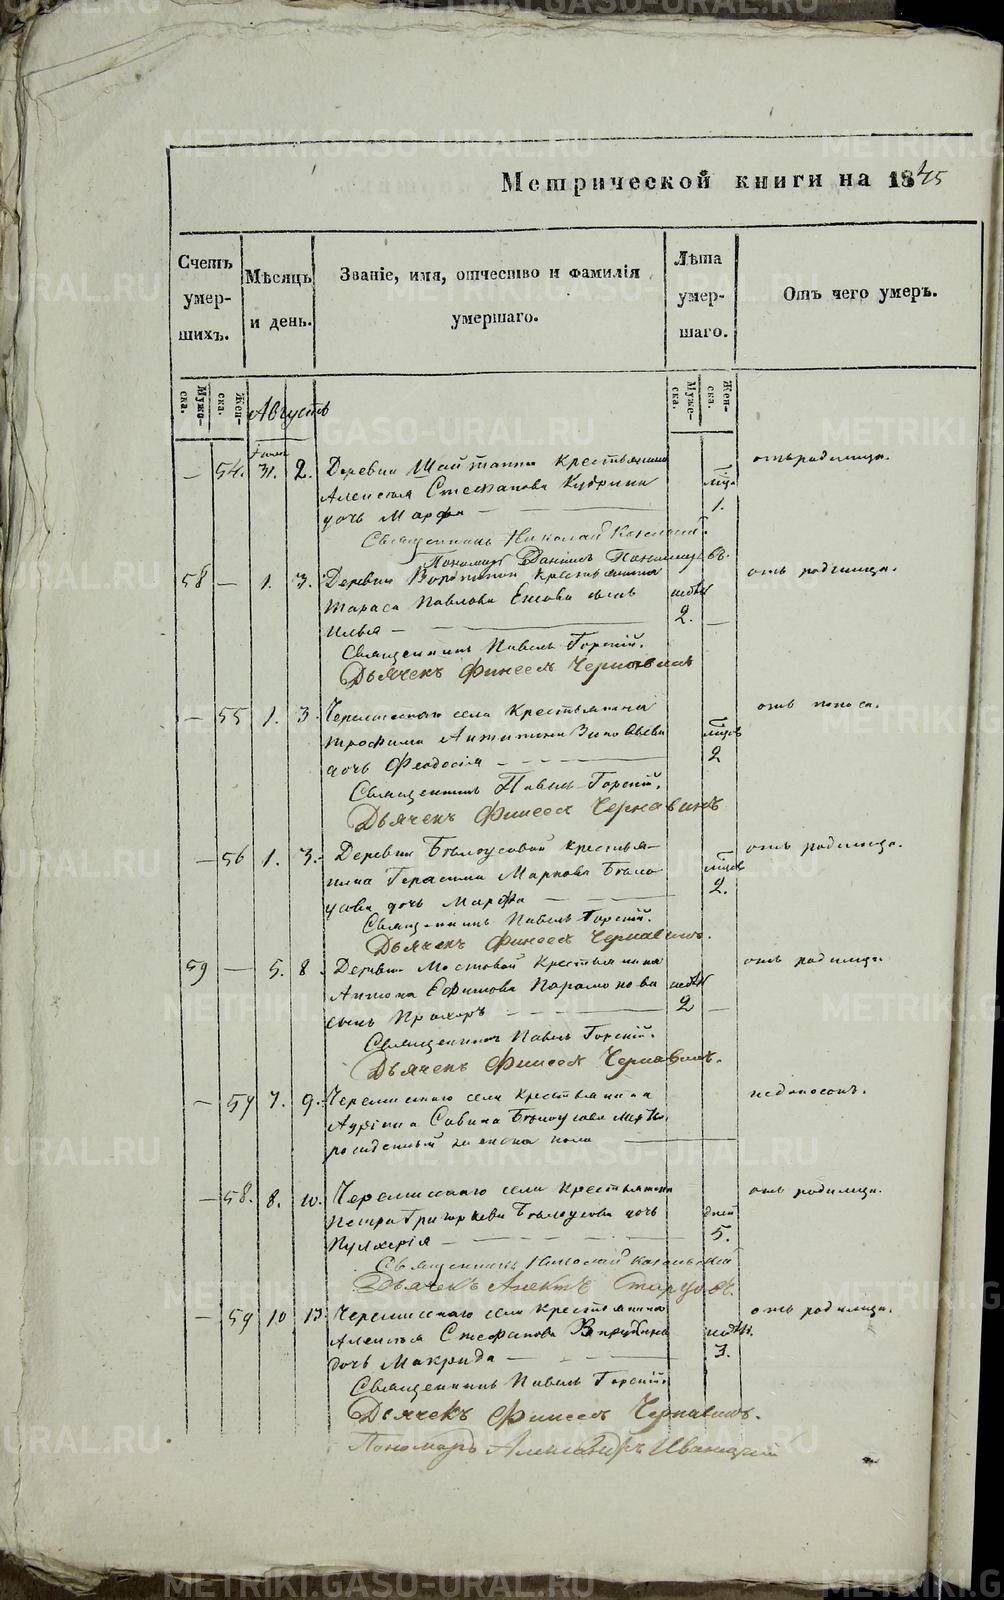 Метрической книги на 1845
Счетъ умер-шихъ.
Мѣсяцъ и день.
Званіе, имя, отчество и фамилія умершаго.
Лѣта умер-шаго.
Отъ чего умеръ.
Муже-ска.
Жен-ска.
Муже-ска.
Жен-ска.
Августъ
— 54. 31. 2. Деревни Шайтанки крестьянина отъ родимца.
Алексѣя Стефанова Кудрина
дочь Марфа — 1.
Священникъ Николай
Пономарь Даніилъ Пономаревъ.
58 — 1. 3. Деревни крестьянина отъ родимца.
Тараса Павлова Ежова сынъ недѣл
Илья — 2. —
Священникъ Павелъ Горскій.
Дьячекъ Финеесъ Чернавинъ
— 55 1. 3. Черемисскаго села крестьянина отъ поноса.
Трофима Антипина Зиновьева мѣсцов
дочь Феодосія — 2
Священникъ Павелъ Горскій.
Дьячекъ Финеесъ Чернавинъ
— 56 1. 3. Деревни Бѣлоусовой крестья- отъ родимца.
нина Герасима Маркова Бѣло мѣсцов
усова дочь Марфа — 2.
Священникъ Павелъ Горскій.
Дьячекъ Финеесъ Чернавинъ.
59 — 5. 8. Деревни Мостовой крестьянина отъ родимца
Антона Ефимова Парамонова недѣл
сынъ Прохоръ — 2 —
Священникъ Павелъ Горскій.
Дьячекъ Финеесъ Чернавинъ.
— 57 7. 9. Черемисскаго села крестьянина недоносокъ.
Савина Бѣлоусова мертво
рожденный женска пола —
— 58. 8. 10. Черемисскаго села крестьянина отъ родимца.
Петра Григорьева Бѣлоусова дочь дней
Пулхерія — 5.
Священникъ Николай
Дьячекъ
— 59 10 Черемисскаго села крестьянина отъ родимца.
Алексѣя Стефанова недѣл.
дочь Макрида — 3.
Священникъ Павелъ Горскій.
Дьячекъ Финеесъ Чернавинъ.
Пономарь Александръ Иваницкій
METRIKI.GASO-URAL.RU